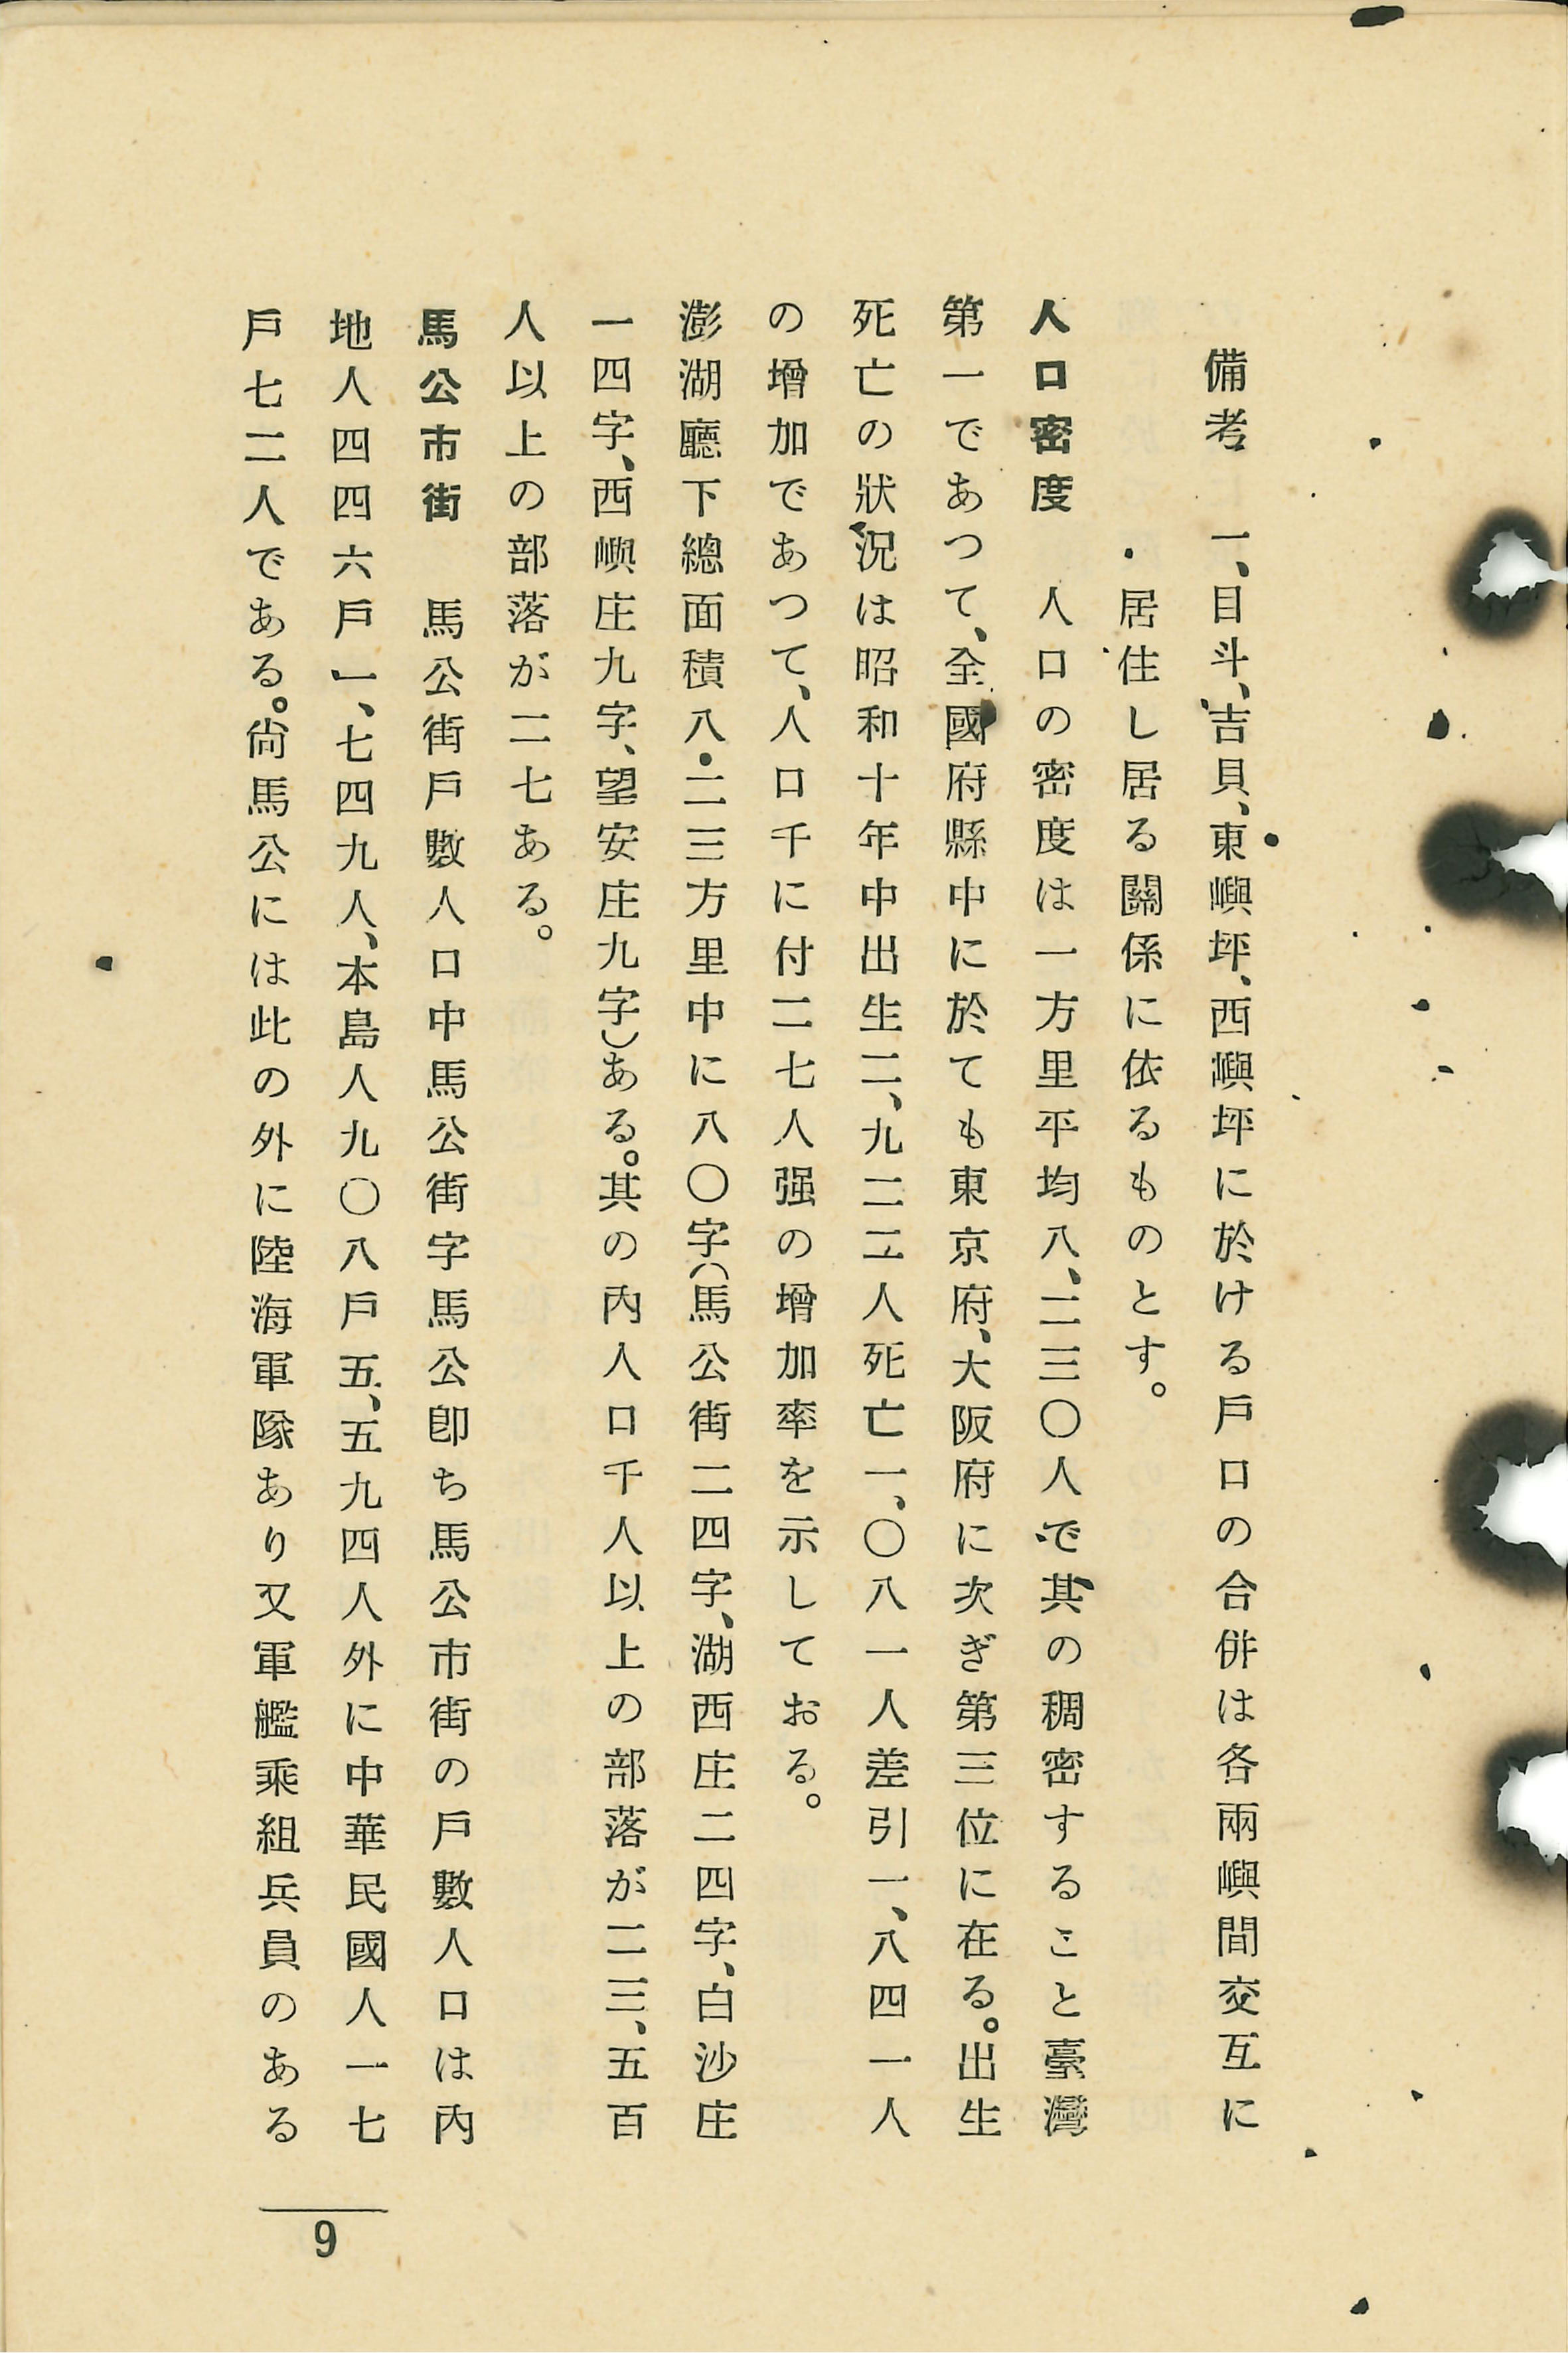 備考　一、目斗、吉貝、東嶼坪、西嶼坪に於ける戶口の合併は各兩嶼間交互に
居住し居る關係に依るものとす。
人口密度　人口の密度は一方里平均八、二三〇人で其の稠密すること臺灣
第一であつて、全國府縣中に於ても東京府、大阪府に次ぎ第三位に在る。出生
死亡の狀況は昭和十年中出生二、九二二人死亡一、〇八一人差引一、八四一人
の增加であつて、人口千に付二七人强の增加率を示しておる。
澎湖廳下總面積八・二三方里中に八〇字（馬公街二四字、湖西庄二四字、白沙庄
一四字、西嶼庄九字、望安庄九字）ある。其の內人口千人以上の部落が二三、五百
人以上の部落が二七ある。
馬公市街　馬公街戶數人口中馬公街字馬公卽ち馬公市街の戶數人口は內
地人四四六戶一、七四九人、本島人九〇八戶五、五九四人外に中華民國人一七
戶七二人である。尙馬公には此の外に陸海軍隊あり又軍艦乘組兵員のある
9